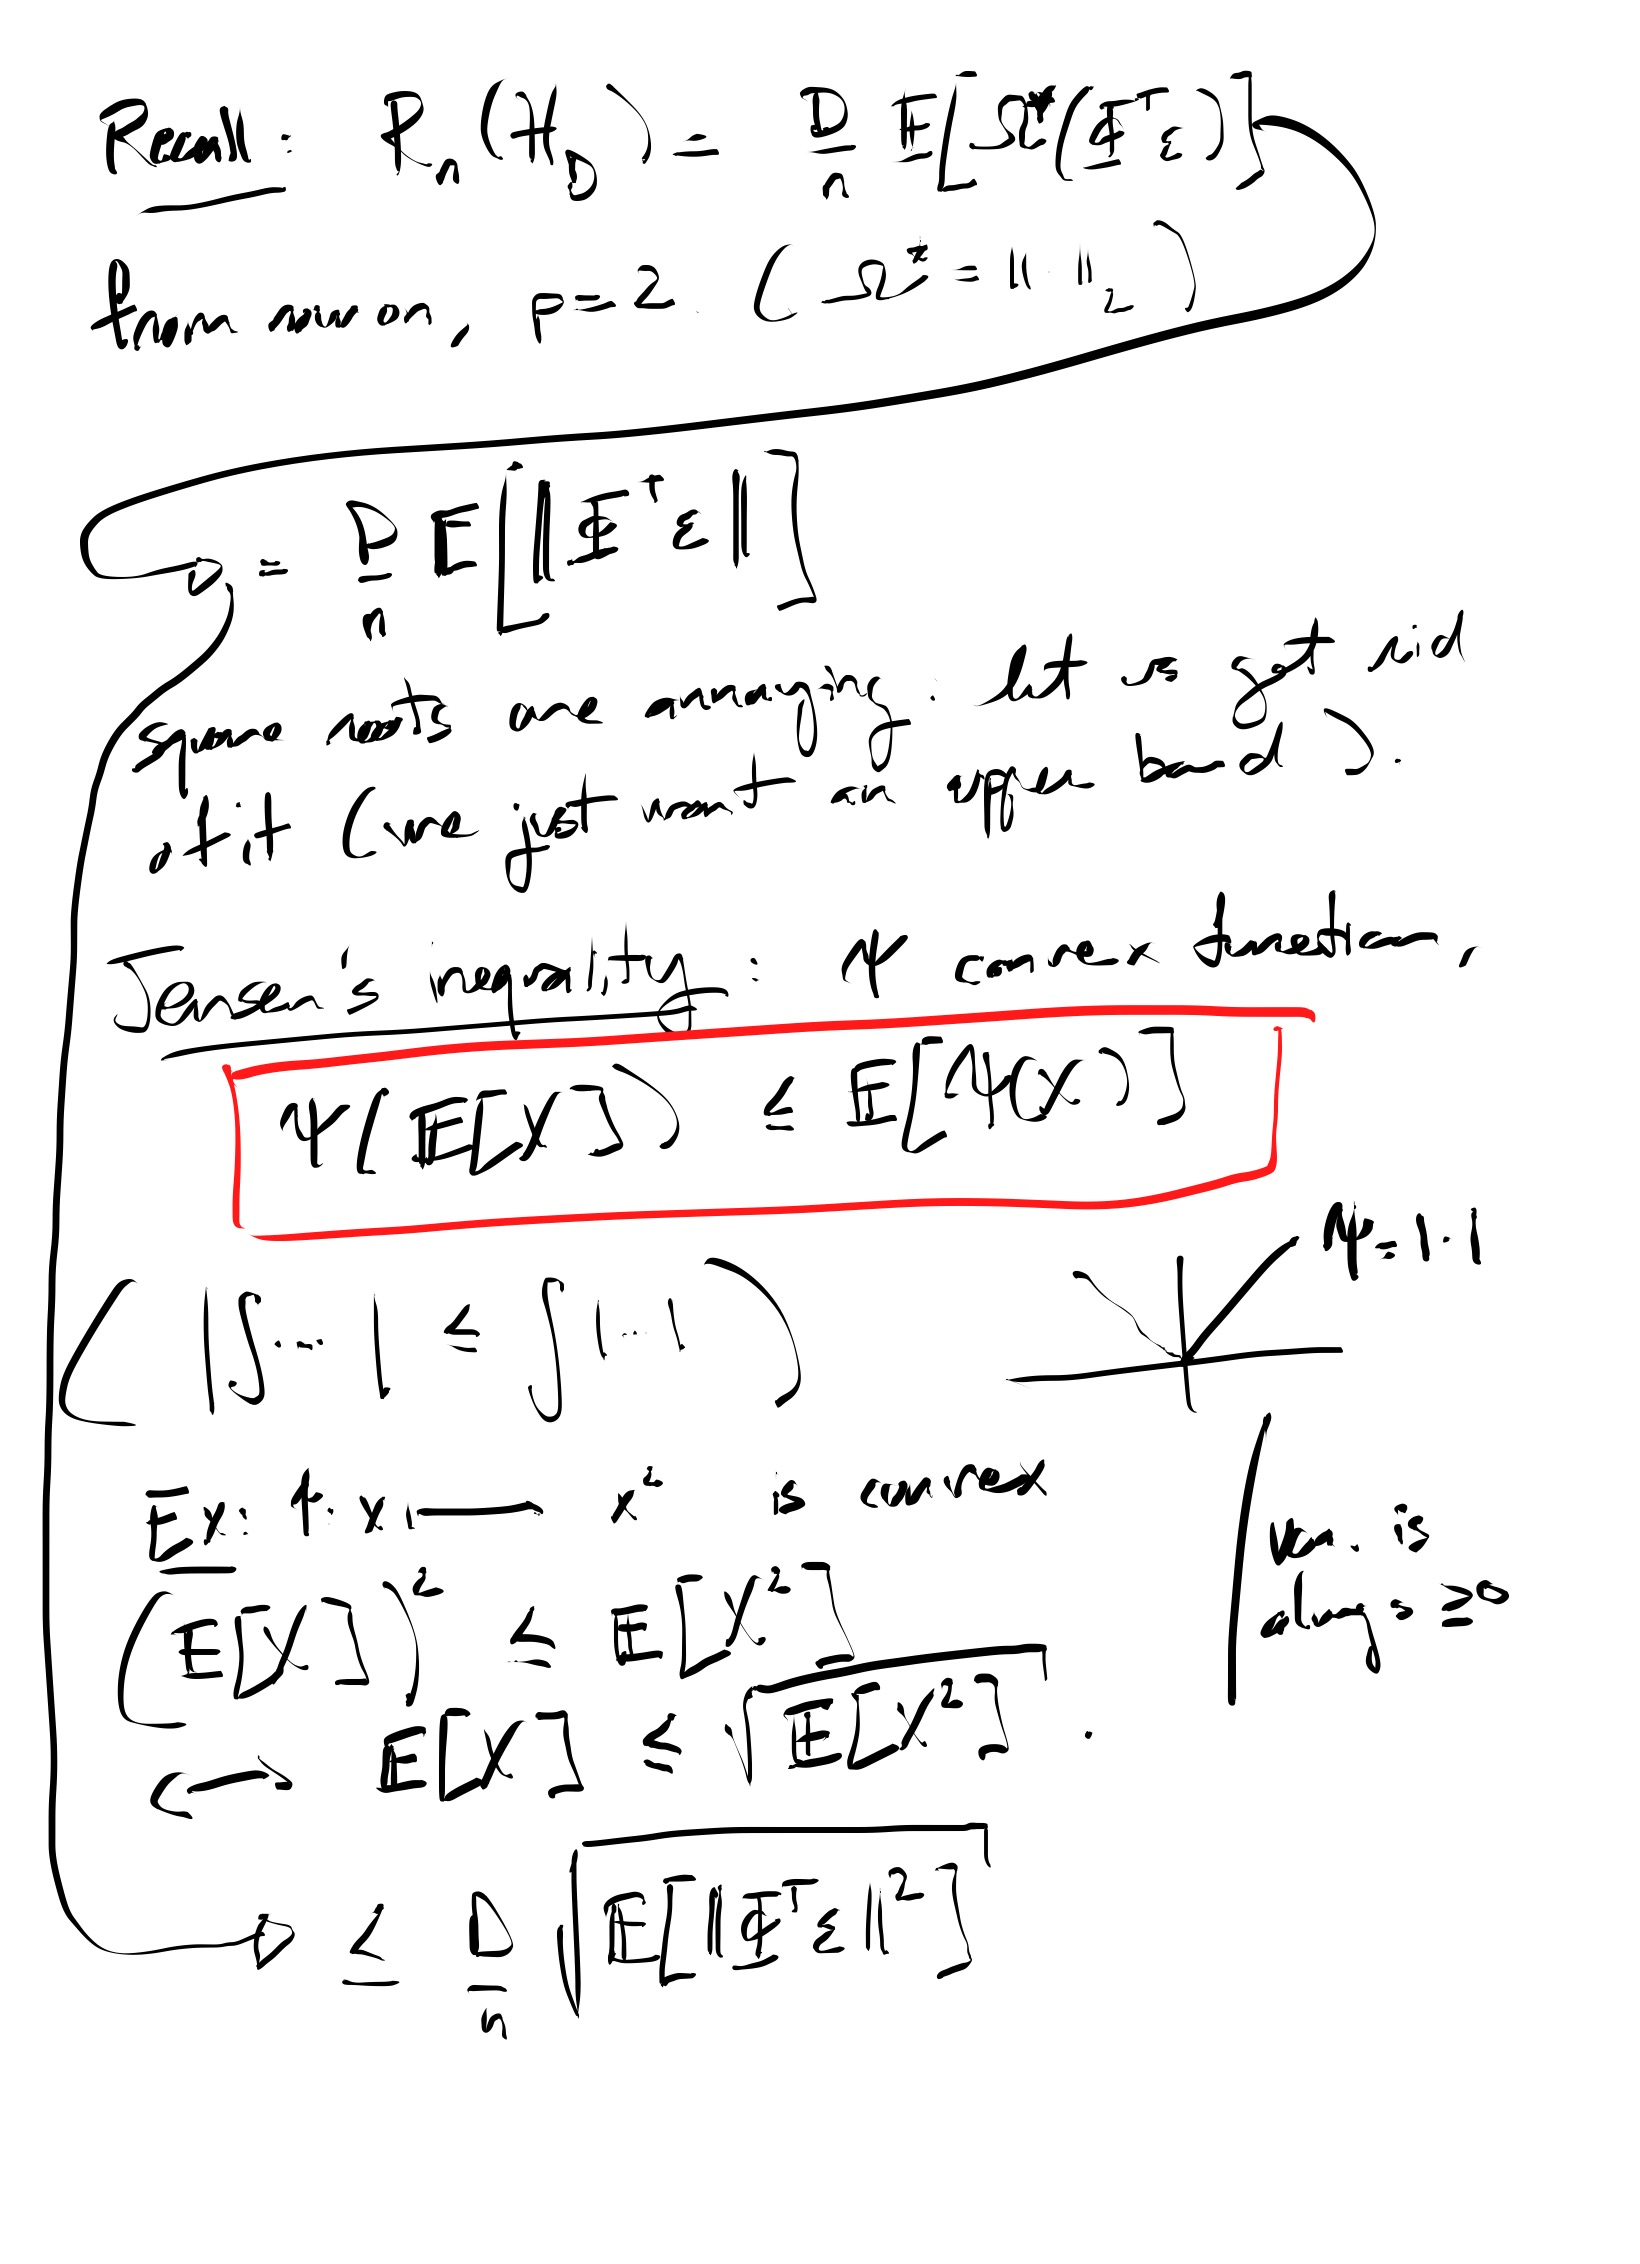 Recall: R_n(H_D) = D/n E[Ω*(Φ^T ε)]
from now on, p=2. (Ω* = ||·||_2)
= D/n E[||Φ^T ε||]
square roots are annoying. let us get rid
of it (we just want an upper bound).
Jensen's inequality: Ψ convex function,
Ψ(E[X]) ≤ E[Ψ(X)]
Ψ=|·|
( |∫...| ≤ ∫|...| )
Ex: x ↦ x² is convex
(E[X])² ≤ E[X²]
var. is
always ≥0
↔ E[X] ≤ √E[X²].
≤ D/n √E[||Φ^T ε||²]